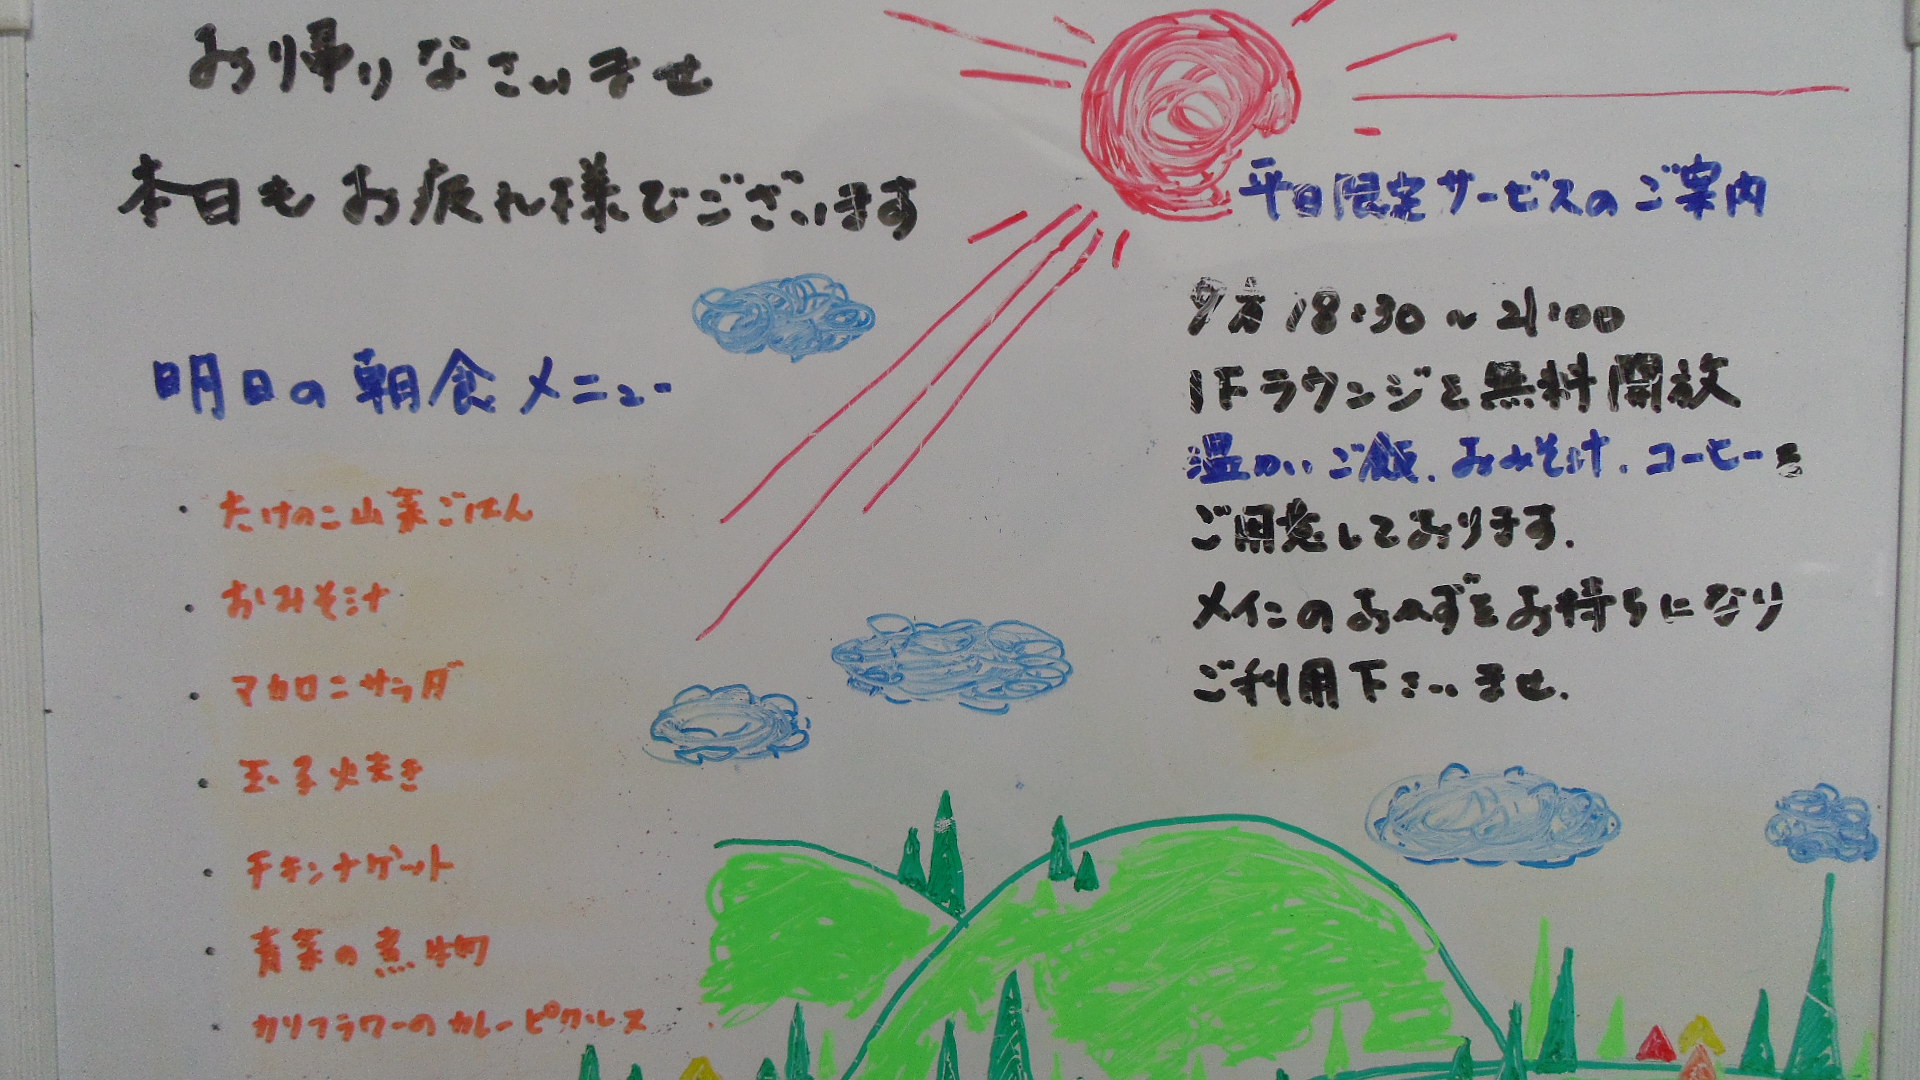 お帰りなさいませ
本日もお疲れ様でございます
明日の朝食メニュー
・たけのこ山菜ごはん
・おみそ汁
・マカロニサラダ
・玉子焼き
・チキンナゲット
・青菜の煮物
・カリフラワーのカレーピクルス
平日限定サービスのご案内
夕方18:30～21:00
1Fラウンジを無料開放
温かいご飯、おみそ汁、コーヒーを
ご用意しております。
メインのおかずをお持ちになり
ご利用下さいませ。